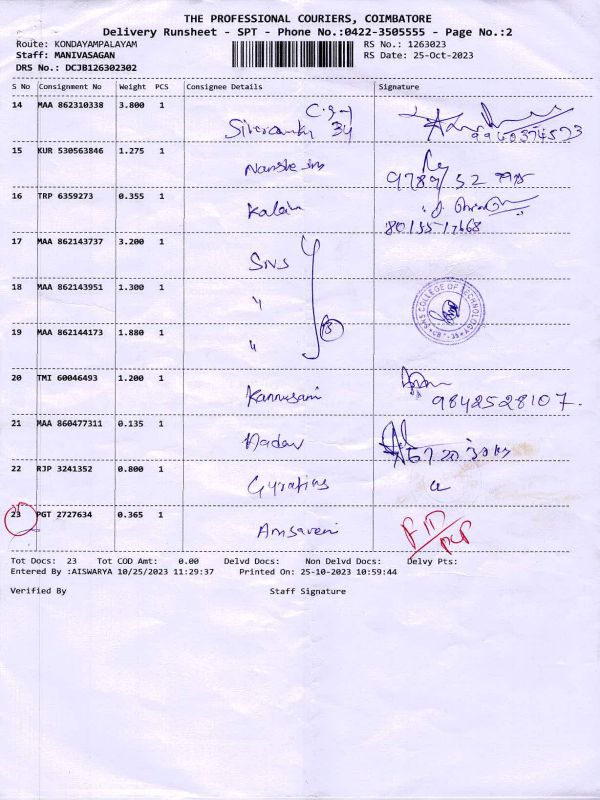 THE PROFESSIONAL COURIERS, COIMBATORE
Delivery Runsheet - SPT - Phone No.:0422-3505555 - Page No.:2
Route: KONDAYAMPALAYAM RS No.: 1263023
Staff: MANIVASAGAN RS Date: 25-Oct-2023
DRS No.: DCJB126302302
S No Consignment No Weight PCS Consignee Details Signature
14 MAA 862310338 3.800 1
34
15 KUR 530563846 1.275 1
16 TRP 6359273 0.355 1 Kalai
17 MAA 862143737 3.200 1 SNS
18 MAA 862143951 1.300 1 "
SNS COLLEGE OF TECHNOLOGY CB-35
19 MAA 862144173 1.880 1 " 3
20 TMI 60046493 1.200 1 Kannusami
9842528107.
21 MAA 860477311 0.135 1
22 RJP 3241352 0.800 1
23 PGT 2727634 0.365 1 Amsaveni
Tot Docs: 23 Tot COD Amt: 0.00 Delvd Docs: Non Delvd Docs: Delvy Pts:
Entered By :AISWARYA 10/25/2023 11:29:37 Printed On: 25-10-2023 10:59:44
Verified By Staff Signature